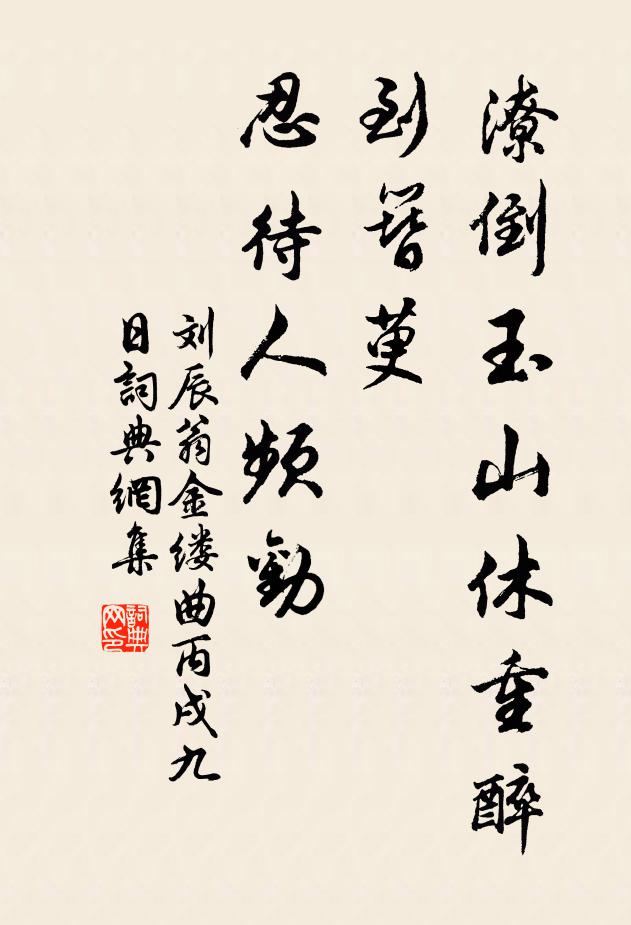 潦倒玉山休重醉
到簪萸
忍待人频勸
刘辰翁金缕曲丙戌九
日詞典網集
詞典网印